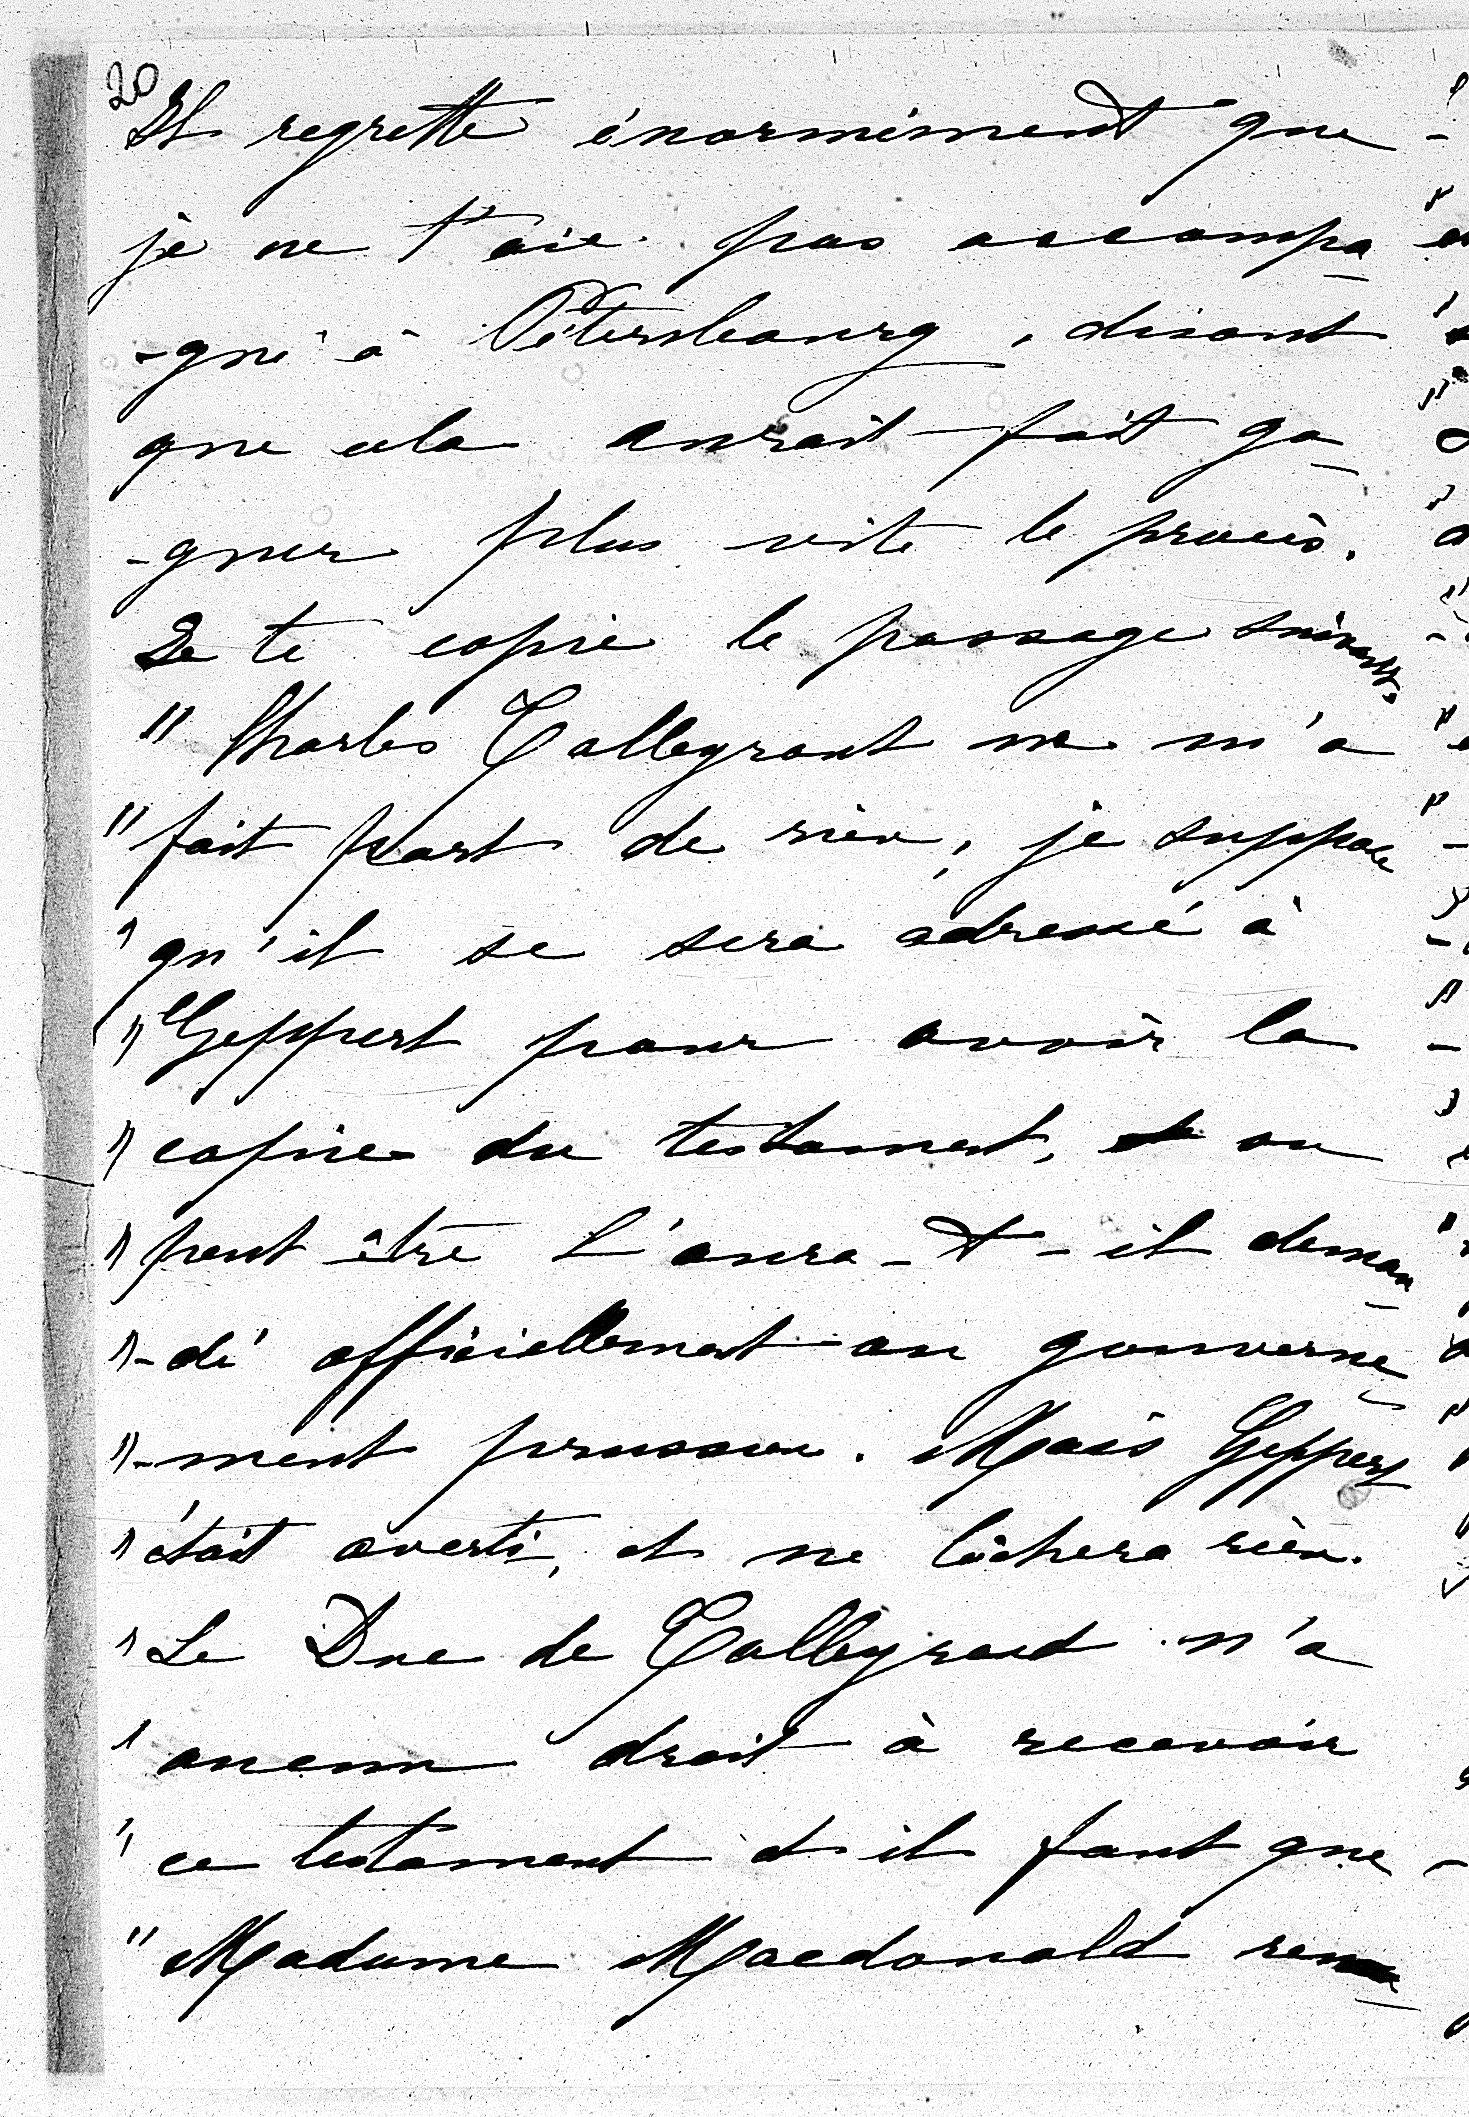 20
Il regrette énormément que
je ne t'aie pas accompa-
-gné à Pétersbourg, disant
que cela aurait fait ga-
-gner plus vite le procès.
Je te copie le passage suivant.
" Charles Talleyrant ne m'a
" fait part de rien, je suppose
" qu'il se sera adressé à
" Geppert pour avoir la
" copie du testament, ou
" peut être l'aura-t-il deman-
"-dé officiellement au gouverne-
"-ment prussien. Mais Geppert
" était averti, et ne lâchera rien.
" Le Duc de Talleyrand n'a
" aucun droit à recevoir
" ce testament et il faut que
" Madame Macdonald